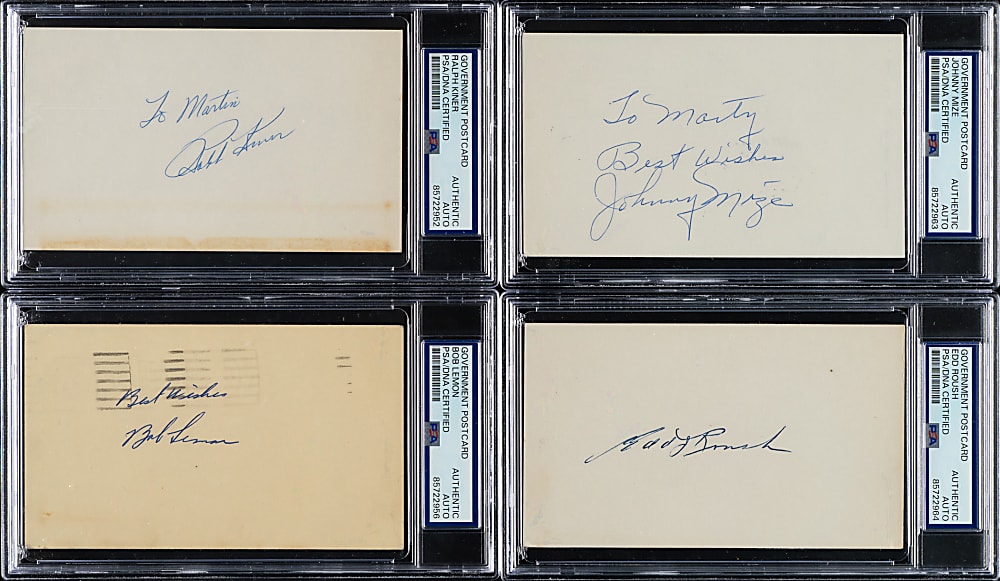 To Martin
Ralph Kiner
GOVERNMENT POSTCARD
RALPH KINER
PSA/DNA CERTIFIED
PSA
AUTHENTIC
AUTO
85722952
To Marty
Best Wishes
Johnny Mize
GOVERNMENT POSTCARD
JOHNNY MIZE
PSA/DNA CERTIFIED
PSA
AUTHENTIC
AUTO
85722963
Best Wishes
Bob Lemon
GOVERNMENT POSTCARD
BOB LEMON
PSA/DNA CERTIFIED
PSA
AUTHENTIC
AUTO
85722956
Edd J Roush
GOVERNMENT POSTCARD
EDD ROUSH
PSA/DNA CERTIFIED
PSA
AUTHENTIC
AUTO
85722964